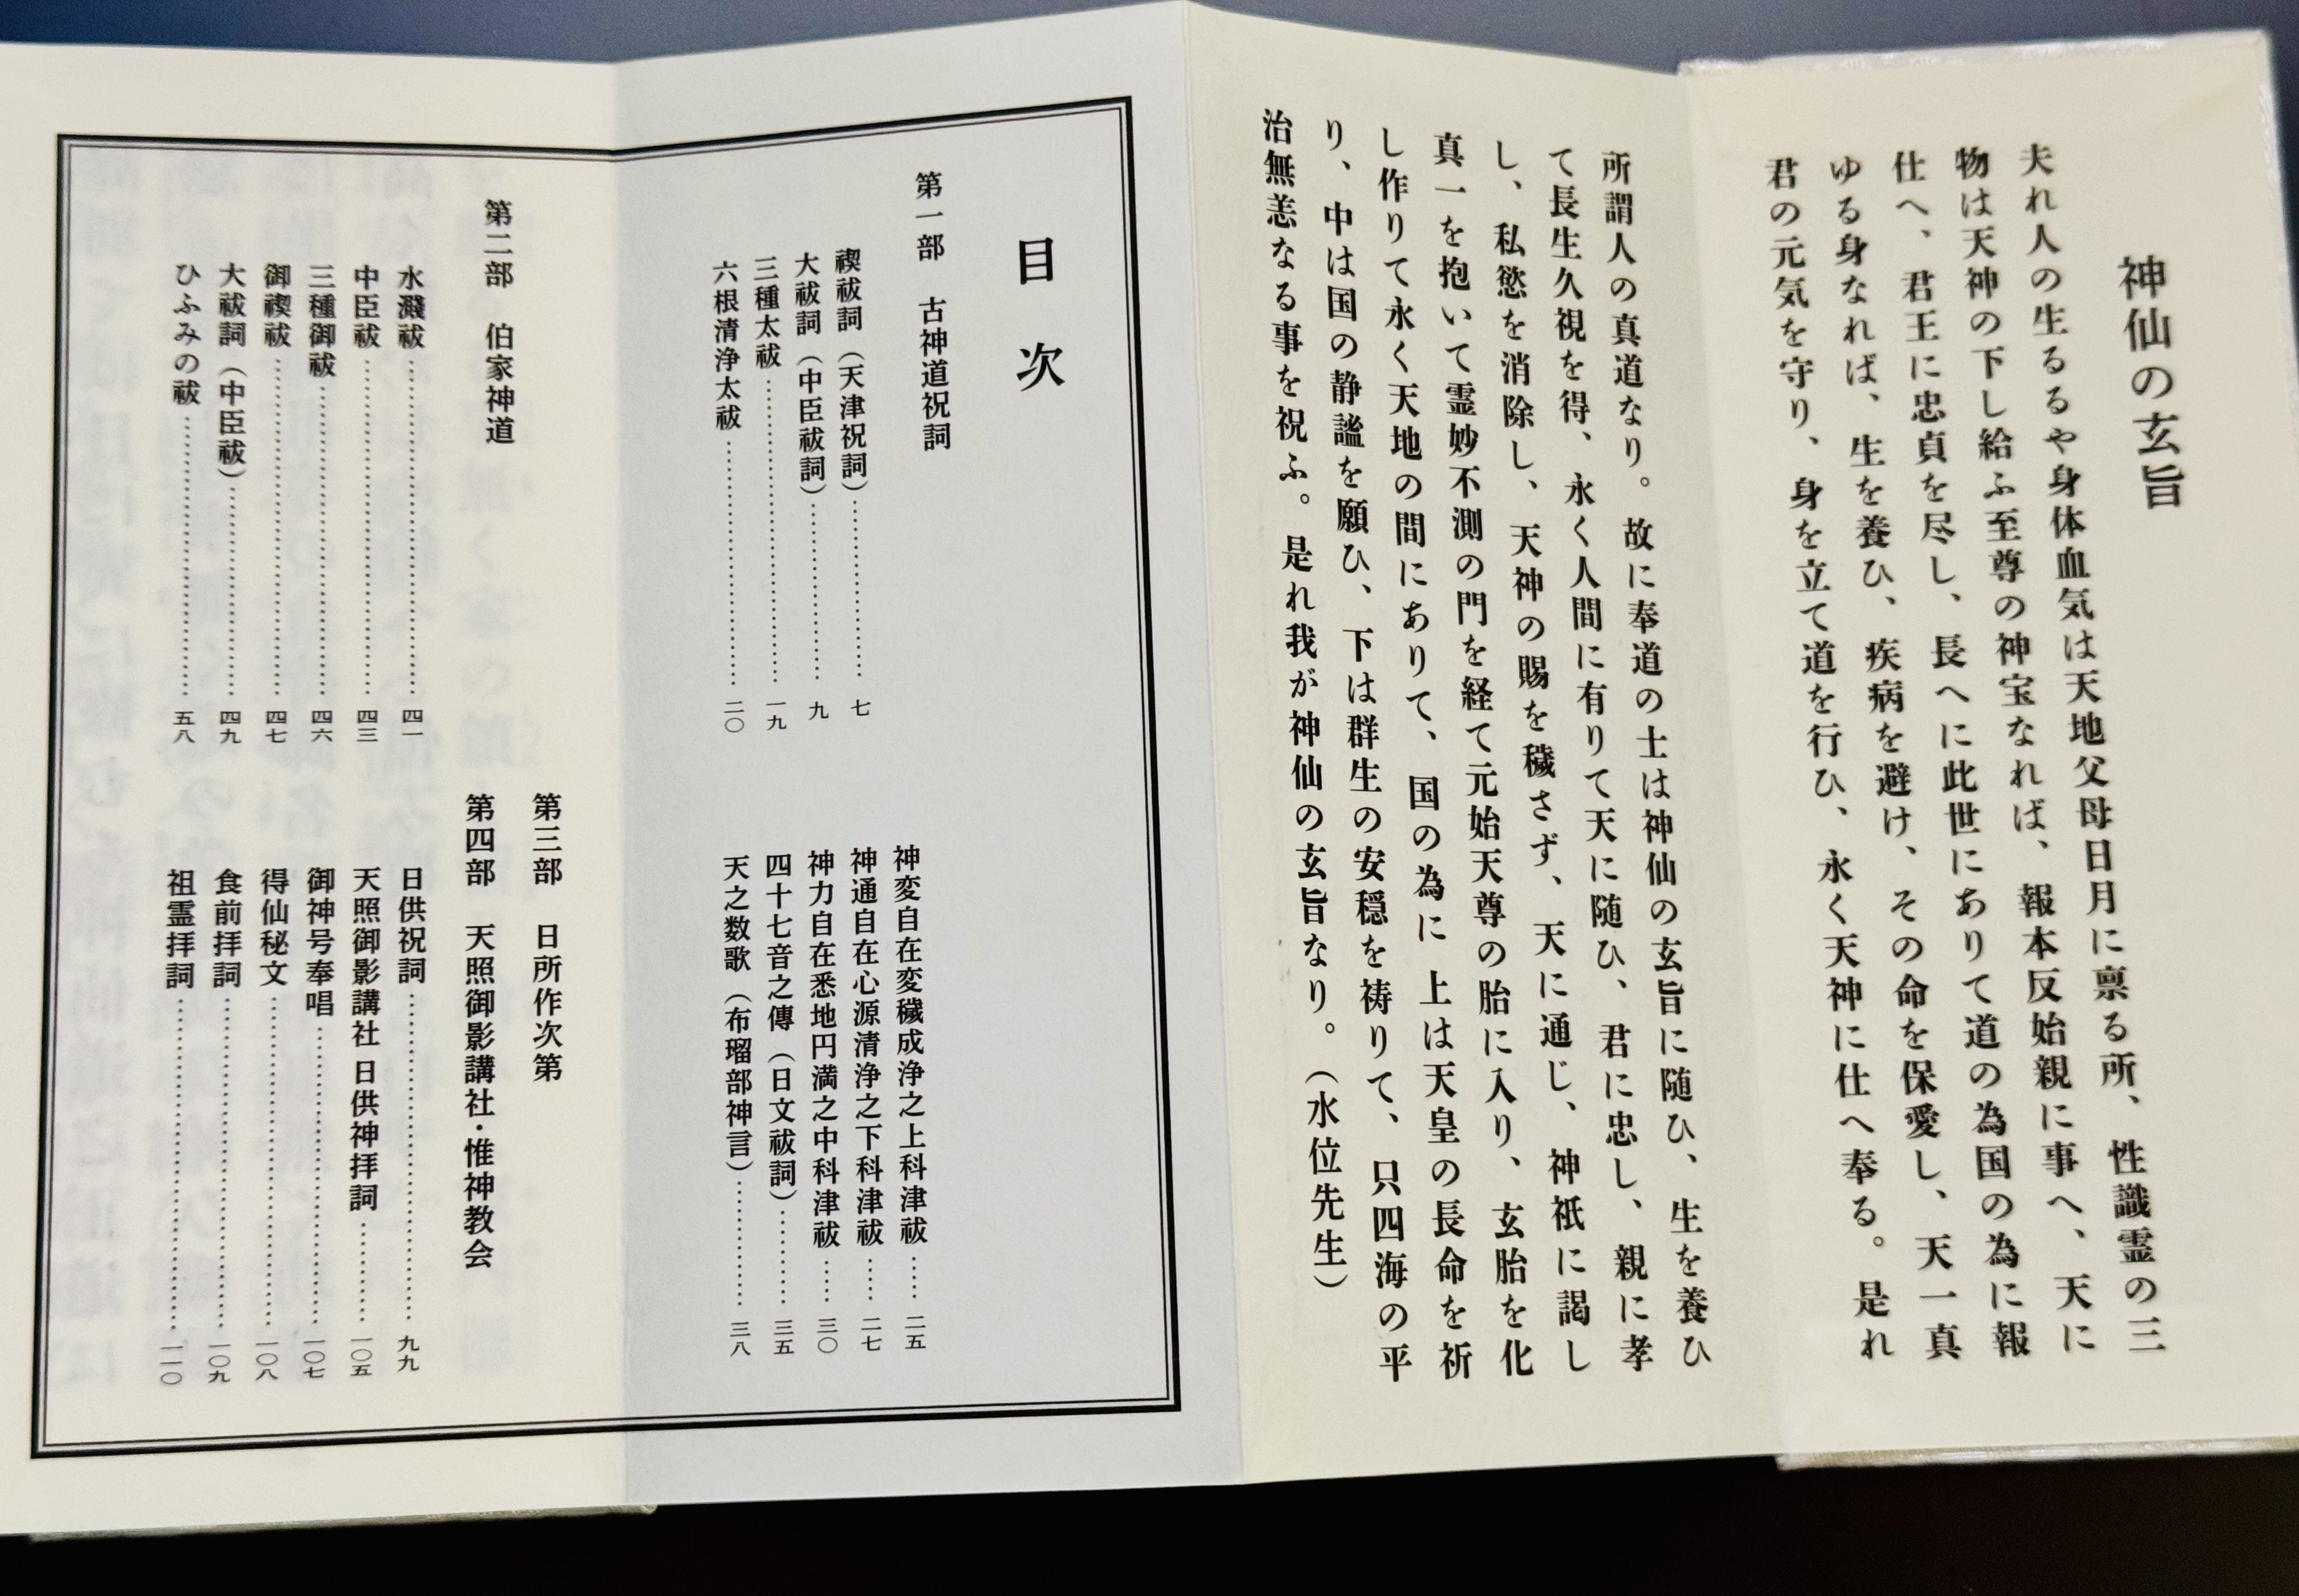 神仙の玄旨
夫れ人の生るるや身体血気は天地父母日月に禀る所、性識霊の三
物は天神の下し給ふ至尊の神宝なれば、報本反始親に事へ、天に
仕へ、君王に忠貞を尽し、長へに此世にありて道の為国の為に報
ゆる身なれば、生を養ひ、疾病を避け、その命を保愛し、天一真
君の元気を守り、身を立て道を行ひ、永く天神に仕へ奉る。是れ
所謂人の真道なり。故に奉道の士は神仙の玄旨に随ひ、生を養ひ
て長生久視を得、永く人間に有りて天に随ひ、君に忠し、親に孝
し、私慾を消除し、天神の賜を穢さず、天に通じ、神祇に謁し
真一を抱いて霊妙不測の門を経て元始天尊の胎に入り、玄胎を化
し作りて永く天地の間にありて、国の為に上は天皇の長命を祈
り、中は国の静謐を願ひ、下は群生の安穏を祷りて、只四海の平
治無恙なる事を祝ふ。是れ我が神仙の玄旨なり。（水位先生）
目次
第一部 古神道祝詞
禊祓詞（天津祝詞）…………七
大祓詞（中臣祓詞）…………九
三種太祓…………一九
六根清浄太祓…………二〇
神変自在変穢成浄之上科津祓……二五
神通自在心源清浄之下科津祓……二七
神力自在悉地円満之中科津祓……三〇
四十七音之傳（日文祓詞）……三五
天之数歌（布瑠部神言）…………三八
第二部 伯家神道
水濺祓…………四一
中臣祓…………四三
三種御祓…………四六
御禊祓…………四七
大祓詞（中臣祓）…………四九
ひふみの祓…………五八
第三部 日所作次第
第四部 天照御影講社・惟神教会
日供祝詞…………九九
天照御影講社 日供神拝詞…………一〇五
御神号奉唱…………一〇七
得仙秘文…………一〇八
食前拝詞…………一〇九
祖霊拝詞…………一一〇